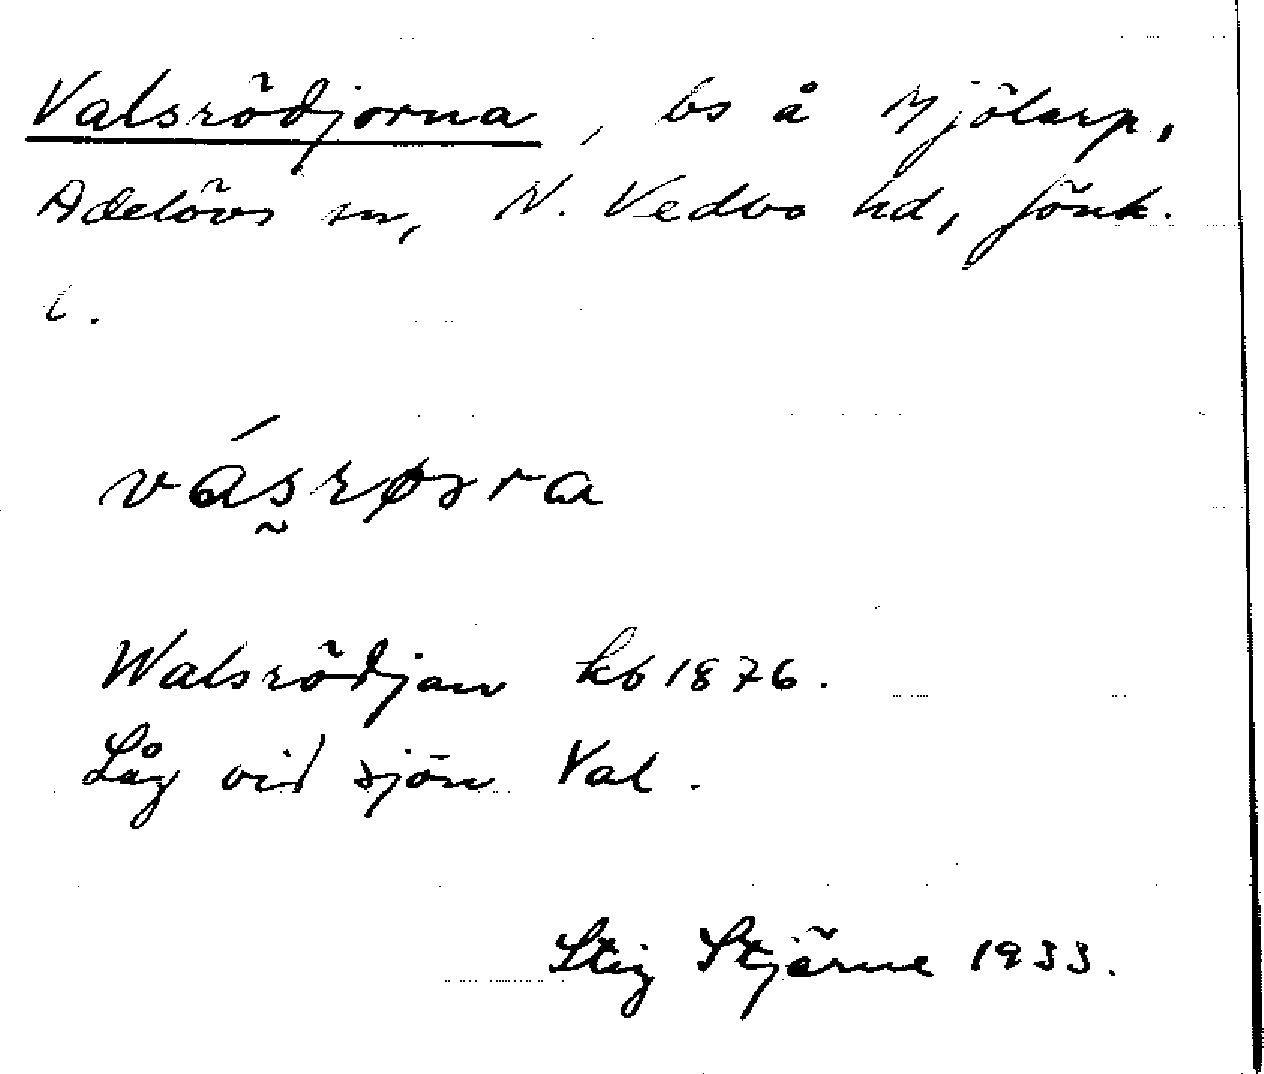 Valsrödjorna, bs å Hjölarp,
Adelövs sn, N. Vedbo hd, Jönk.
l.
Walsrödjan kb 1876.
Låg vid sjön Val.
Stig Stjärne 1933.